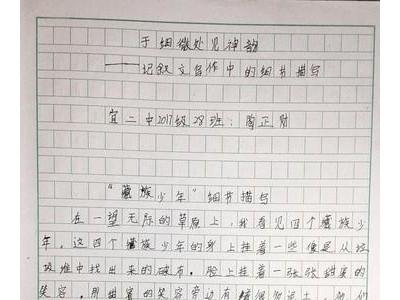 于细微处见神韵
——记叙文写作中的细节描写
宜二中2017级28班:陶正财
“藏族少年”细节描写
在一望无际的草原上,我看见四个藏族少
年,这四个藏族少年的身上挂着一些像是从垃
圾堆中找出来的破布,脸上挂着一张张甜美的
笑容,那甜蜜的笑容旁边有